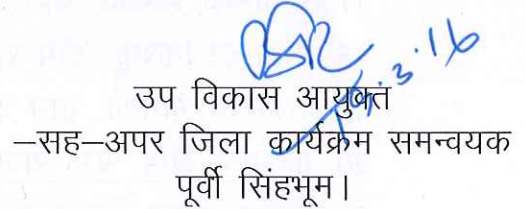 उप विकास आयुक्त
–सह–अपर जिला कार्यक्रम समन्वयक
पूर्वी सिंहभूम।